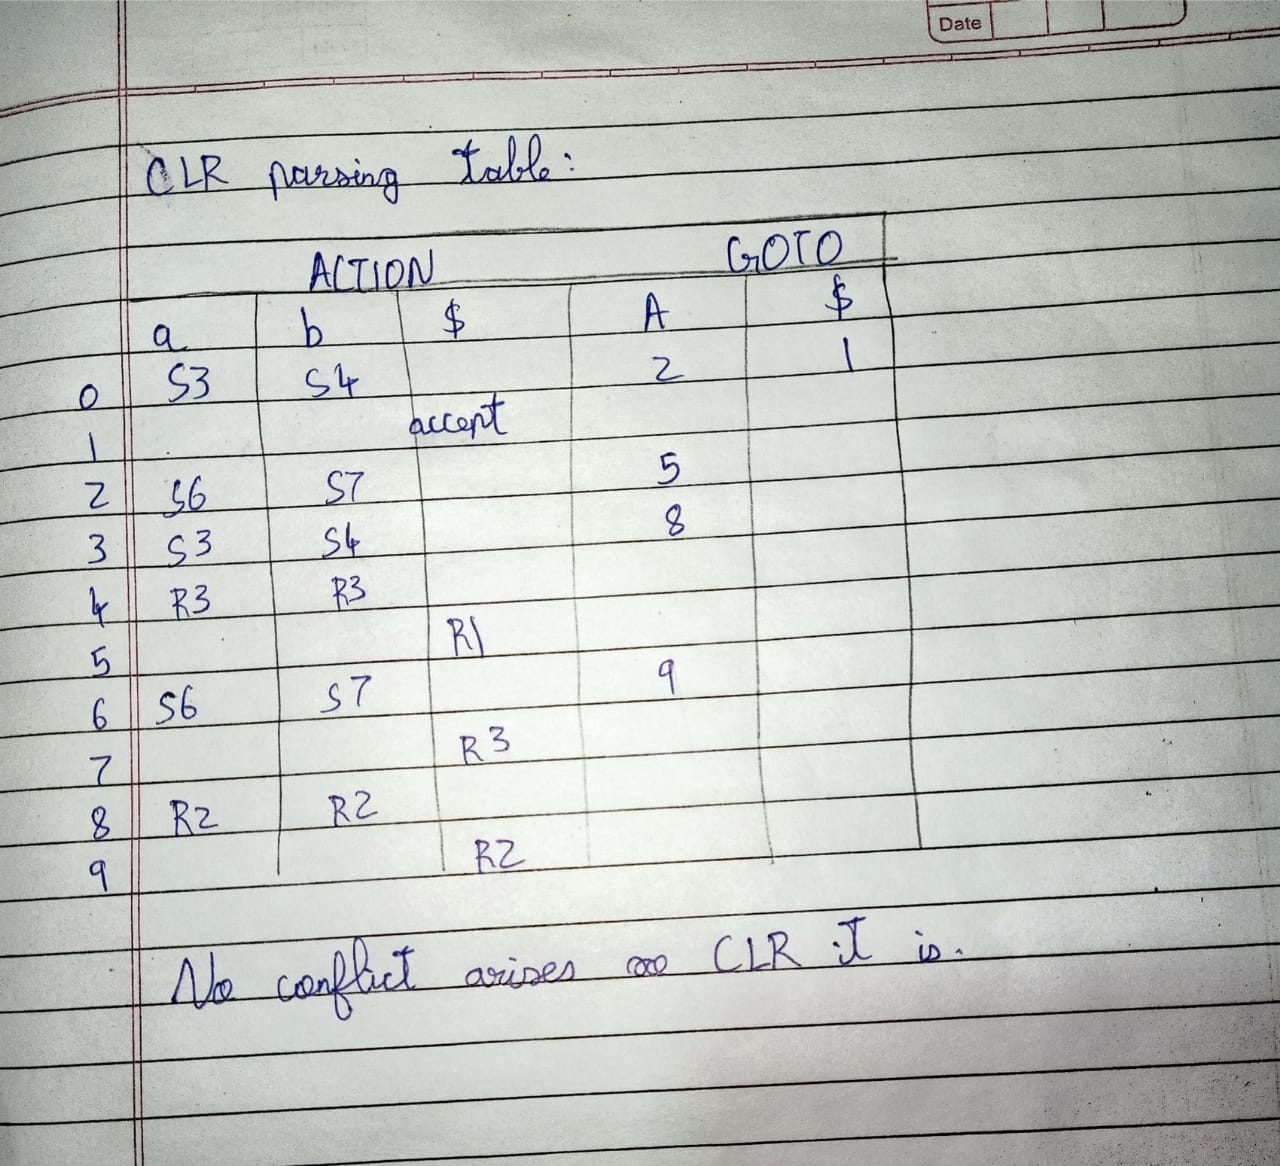 Date
CLR parsing table:
ACTION GOTO
a b $ A $
0 S3 S4 2 1
1 accept
2 S6 S7 5
3 S3 S4 8
4 R3 R3
5 R1
6 S6 S7 9
7 R3
8 R2 R2
9 R2
No conflict arises so CLR it is.